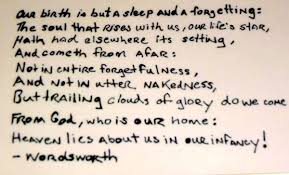 Our birth is but a sleep and a forgetting:
The soul that rises with us, our life's star,
Hath had elsewhere its setting,
And cometh from afar:
Not in entire forgetfulness,
And not in utter nakedness,
But trailing clouds of glory do we come
From God, who is our home:
Heaven lies about us in our infancy!
- Wordsworth